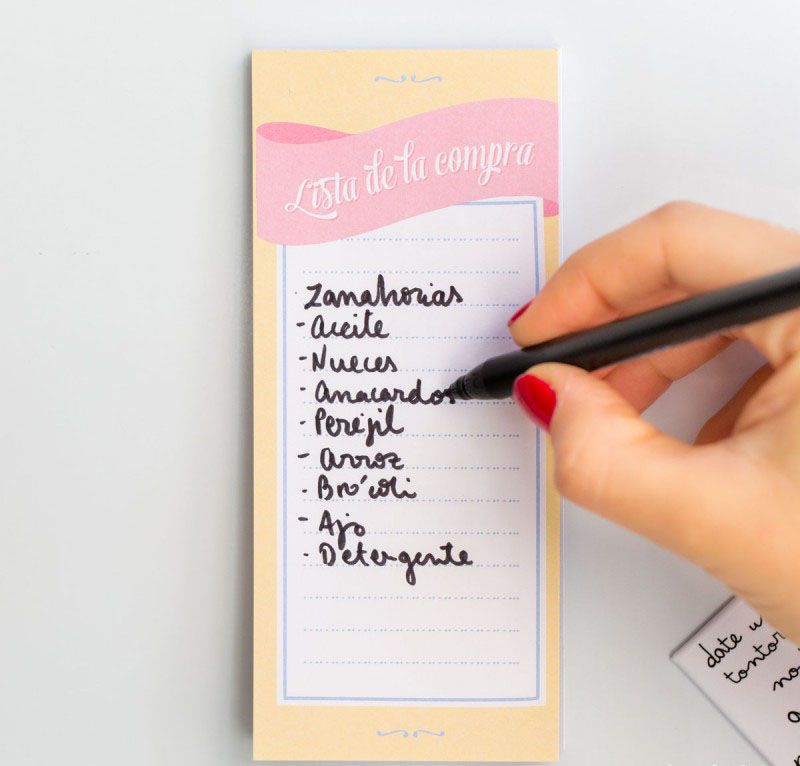 Lista de la compra
Zanahorias
- Aceite
- Nueces
- Anacardos
- Perejil
- Arroz
- Brócoli
- Ajo
- Detergente
date u
tontor
no